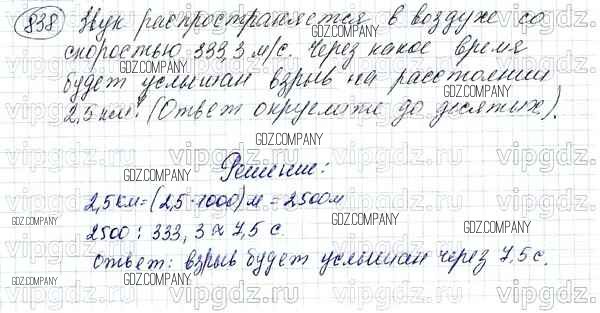 838 Звук распространяется в воздухе со
скоростью 333,3 м/с. Через какое время
будет услышан взрыв на расстоянии
2,5 км? (Ответ округлите до десятых).
Решение:
2,5 км = (2,5 · 1000) м = 2500 м
2500 : 333,3 ≈ 7,5 с.
Ответ: взрыв будет услышан через 7,5 с.
GDZ.COMPANY
vipgdz.ru